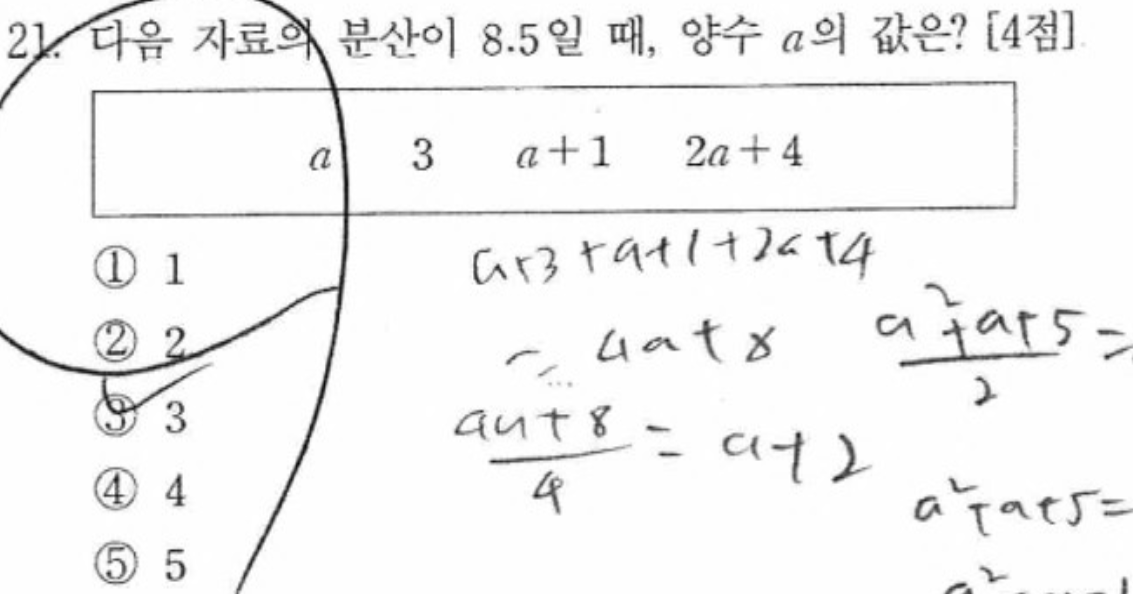 21. 다음 자료의 분산이 8.5일 때, 양수 a의 값은? [4점]
a 3 a+1 2a+4
① 1
② 2
③ 3
④ 4
⑤ 5
a+3+a+1+2a+4
= 4a+8
4a+8/4 = a+2
a²+a+5/2 =
a²+a+5=